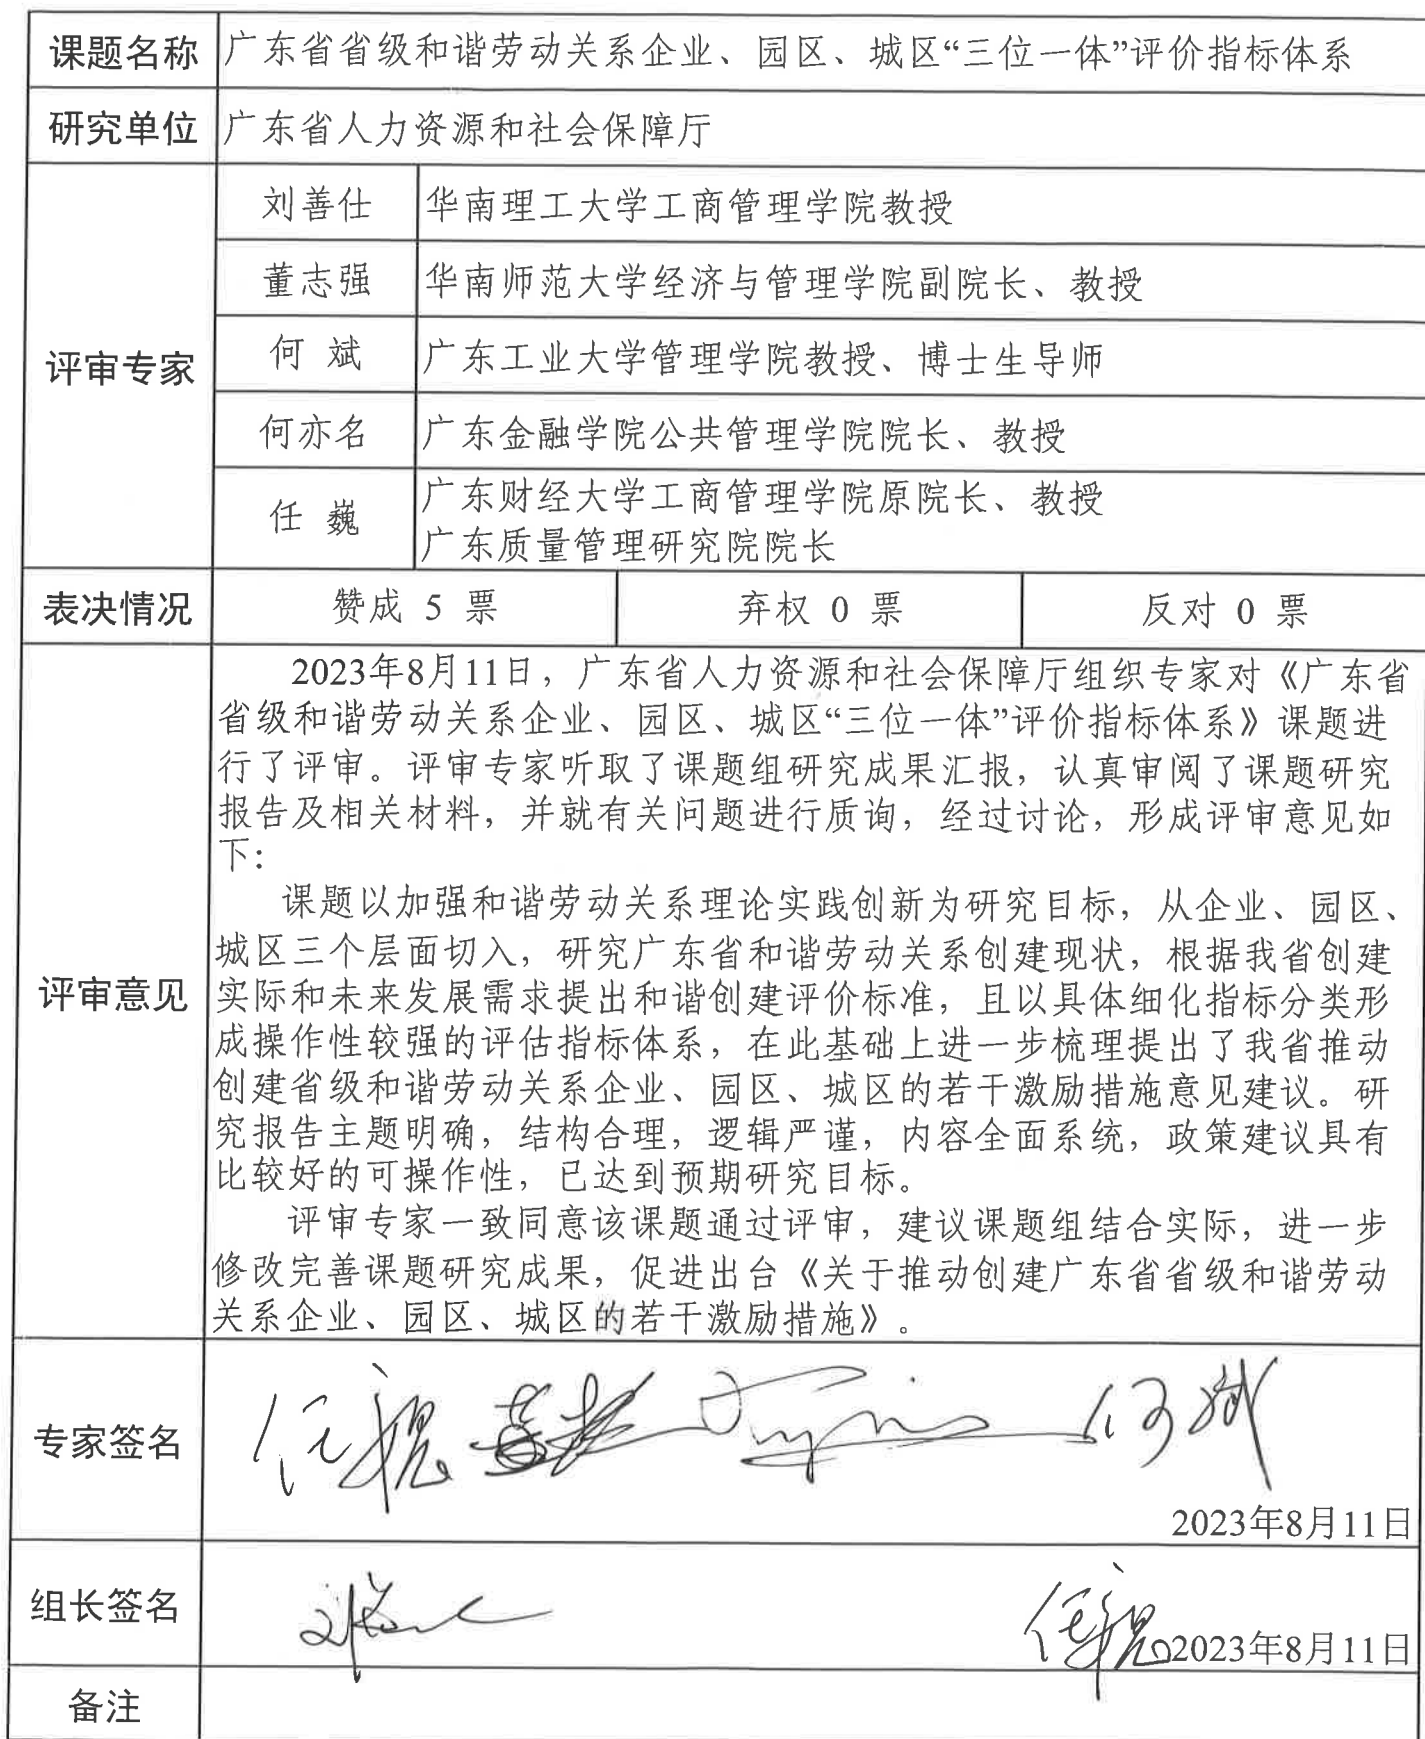 课题名称 广东省省级和谐劳动关系企业、园区、城区“三位一体”评价指标体系
研究单位 广东省人力资源和社会保障厅
评审专家
刘善仕 华南理工大学工商管理学院教授
董志强 华南师范大学经济与管理学院副院长、教授
何 斌 广东工业大学管理学院教授、博士生导师
何亦名 广东金融学院公共管理学院院长、教授
任 巍 广东财经大学工商管理学院原院长、教授
广东质量管理研究院院长
表决情况 赞成 5 票 弃权 0 票 反对 0 票
评审意见
2023年8月11日，广东省人力资源和社会保障厅组织专家对《广东省
省级和谐劳动关系企业、园区、城区“三位一体”评价指标体系》课题进
行了评审。评审专家听取了课题组研究成果汇报，认真审阅了课题研究
报告及相关材料，并就有关问题进行质询，经过讨论，形成评审意见如
下：
课题以加强和谐劳动关系理论实践创新为研究目标，从企业、园区、
城区三个层面切入，研究广东省和谐劳动关系创建现状，根据我省创建
实际和未来发展需求提出和谐创建评价标准，且以具体细化指标分类形
成操作性较强的评估指标体系，在此基础上进一步梳理提出了我省推动
创建省级和谐劳动关系企业、园区、城区的若干激励措施意见建议。研
究报告主题明确，结构合理，逻辑严谨，内容全面系统，政策建议具有
比较好的可操作性，已达到预期研究目标。
评审专家一致同意该课题通过评审，建议课题组结合实际，进一步
修改完善课题研究成果，促进出台《关于推动创建广东省省级和谐劳动
关系企业、园区、城区的若干激励措施》。
专家签名 任巍 何斌
2023年8月11日
组长签名 任巍 2023年8月11日
备注